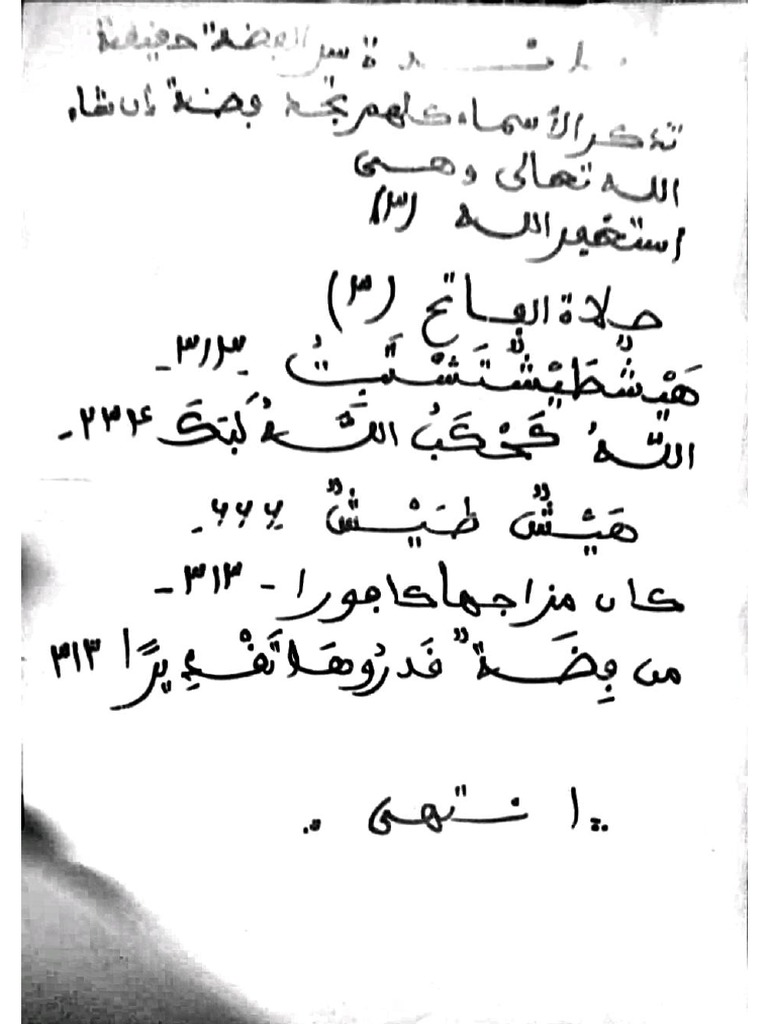 فائدة سر الفضة حقيقة
تذكر الأسماء كلهم تجد فضة إن شاء
الله تعالى وهي
استغفر الله (٣)
صلاة الفاتح (٣)
هَيْشٌطَيْشٌ ٣١٣-
اللهُ اللهُ ٢٣٤-
هَيْشٌ طَيْشٌ ٦٦٦-
كان مزاجها كافورا - ٣١٣-
من فِضَةٌ قَدرُوهَا تَقْدِيرًا ٣١٣
انتهى